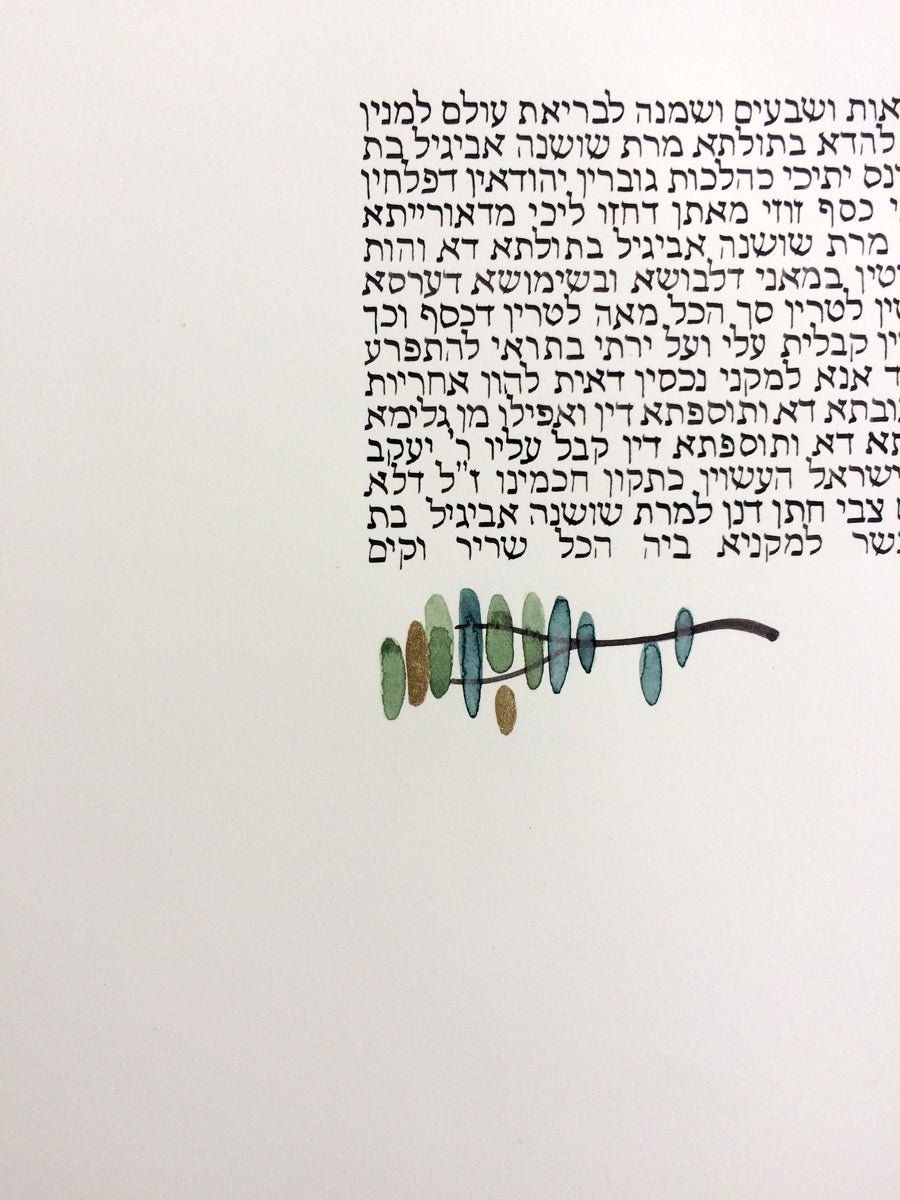 אות ושבעים ושמנה לבריאת עולם למנין
להדא בתולתא מרת שושנה אביגיל בת
יתיכי כהלכות גוברין יהודאין דפלחין
כסף זוזי מאתן דחזו ליכי מדאורייתא
מרת שושנה אביגיל בתולתא דא והות
במאני דלבושא ובשימושא דערסא
לטרין סך הכל מאה לטרין דכסף וכך
קבלית עלי ועל ירתי בתראי להתפרע
אנא למקני נכסין דאית להון אחריות
דא ותוספתא דין ואפילו מן גלימא
דא ותוספתא דין קבל עליו ר' יעקב
ישראל העשוין כתקון חכמינו ז"ל דלא
צבי חתן דנן למרת שושנה אביגיל בת
למקניא ביה הכל שריר וקים